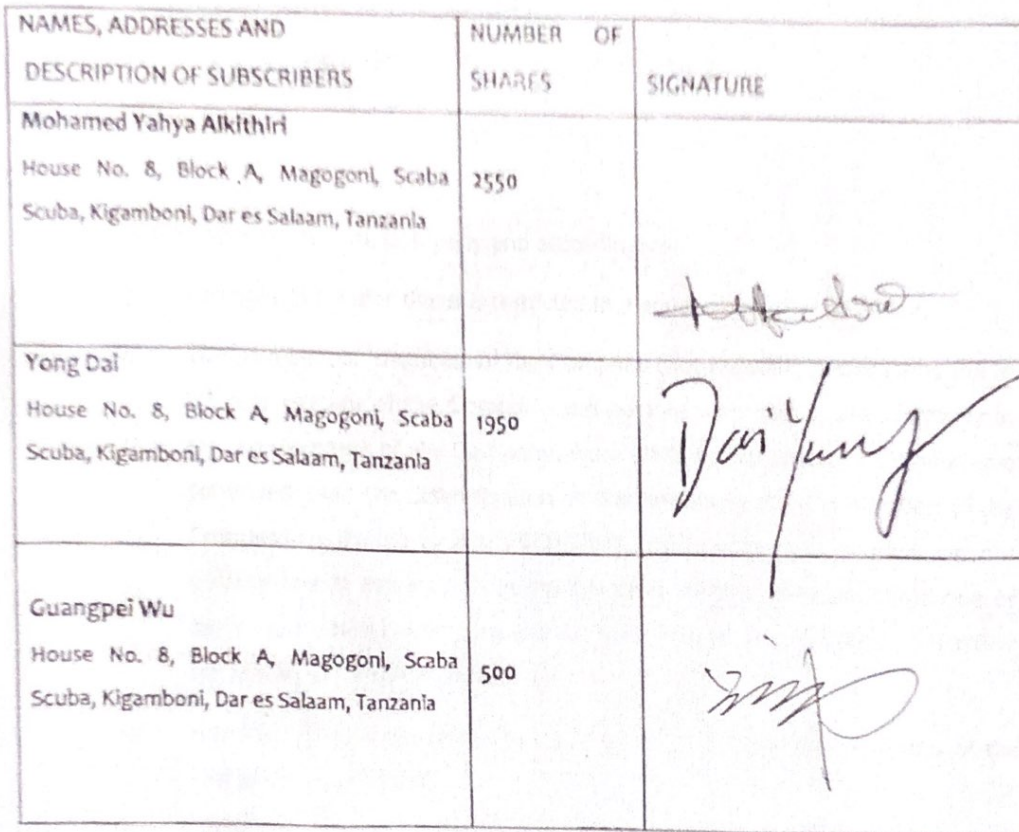 NAMES, ADDRESSES AND
DESCRIPTION OF SUBSCRIBERS
NUMBER OF
SHARES
SIGNATURE
Mohamed Yahya Alkithiri
House No. 8, Block A, Magogoni, Scaba
Scuba, Kigamboni, Dar es Salaam, Tanzania
2550
Yong Dai
House No. 8, Block A, Magogoni, Scaba
Scuba, Kigamboni, Dar es Salaam, Tanzania
1950
Guangpei Wu
House No. 8, Block A, Magogoni, Scaba
Scuba, Kigamboni, Dar es Salaam, Tanzania
500